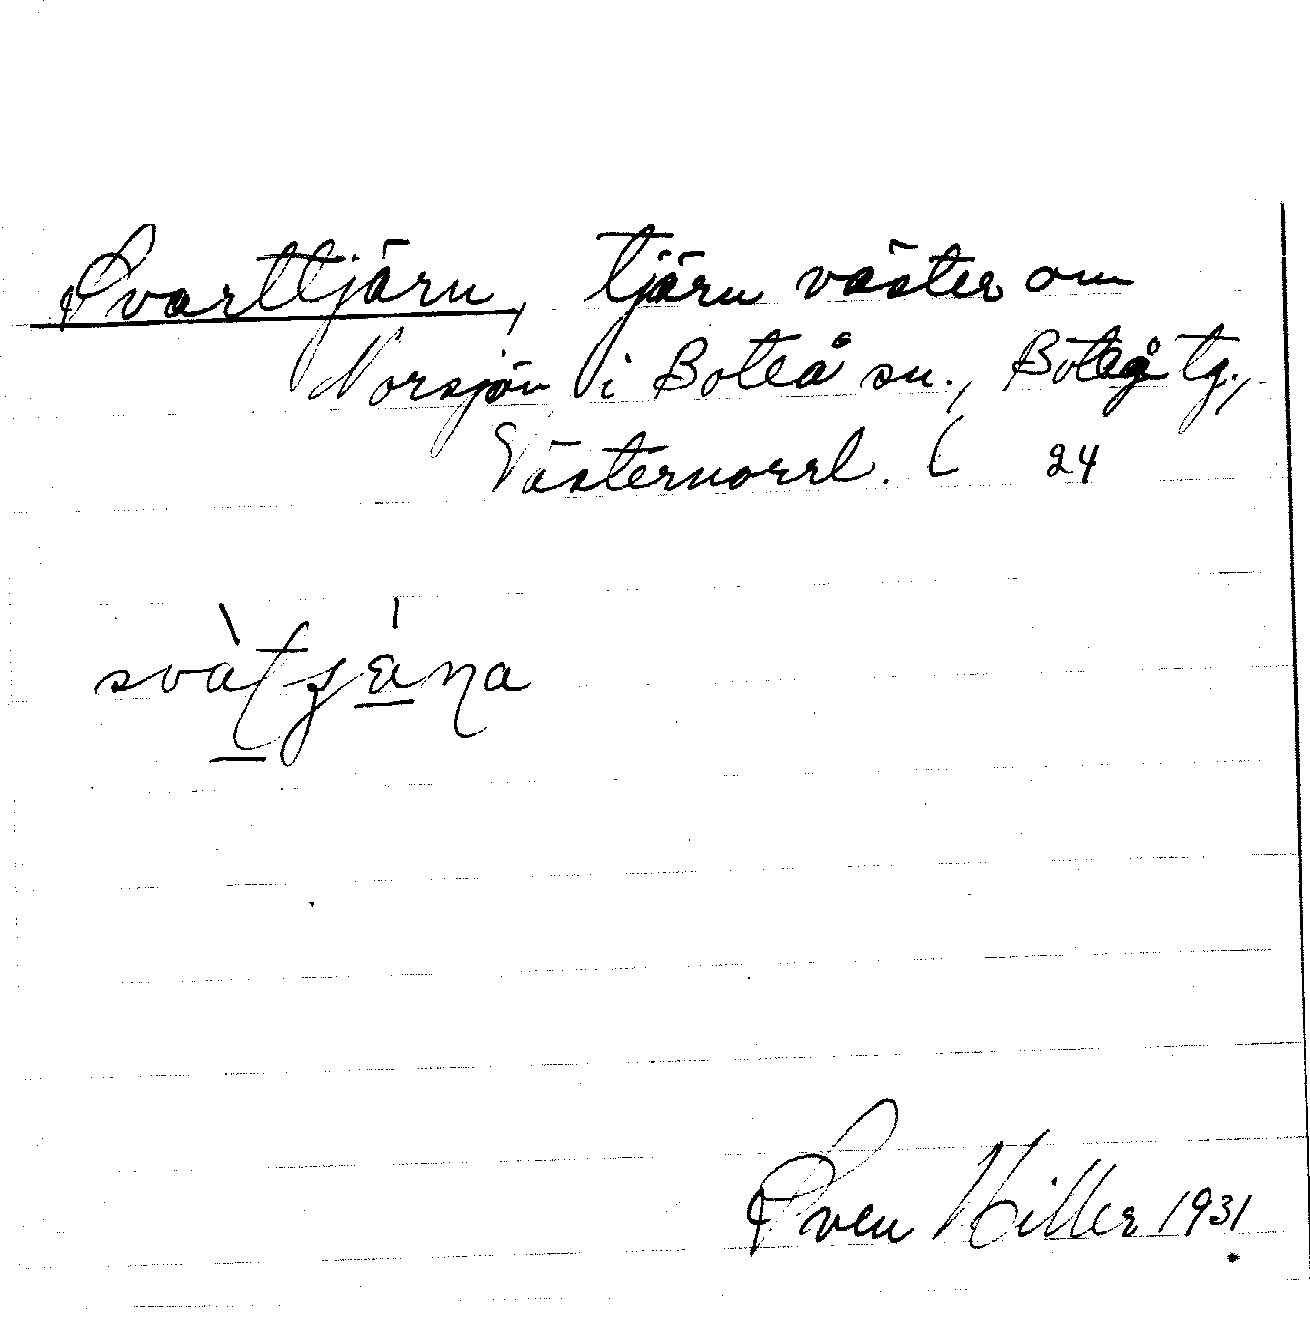 Svarttjärn, tjärn väster om
Norsjön i Boteå sn., Boteå tg.,
Västernorrl. l 24
svàtjäṇa
Sven Hiller 1931